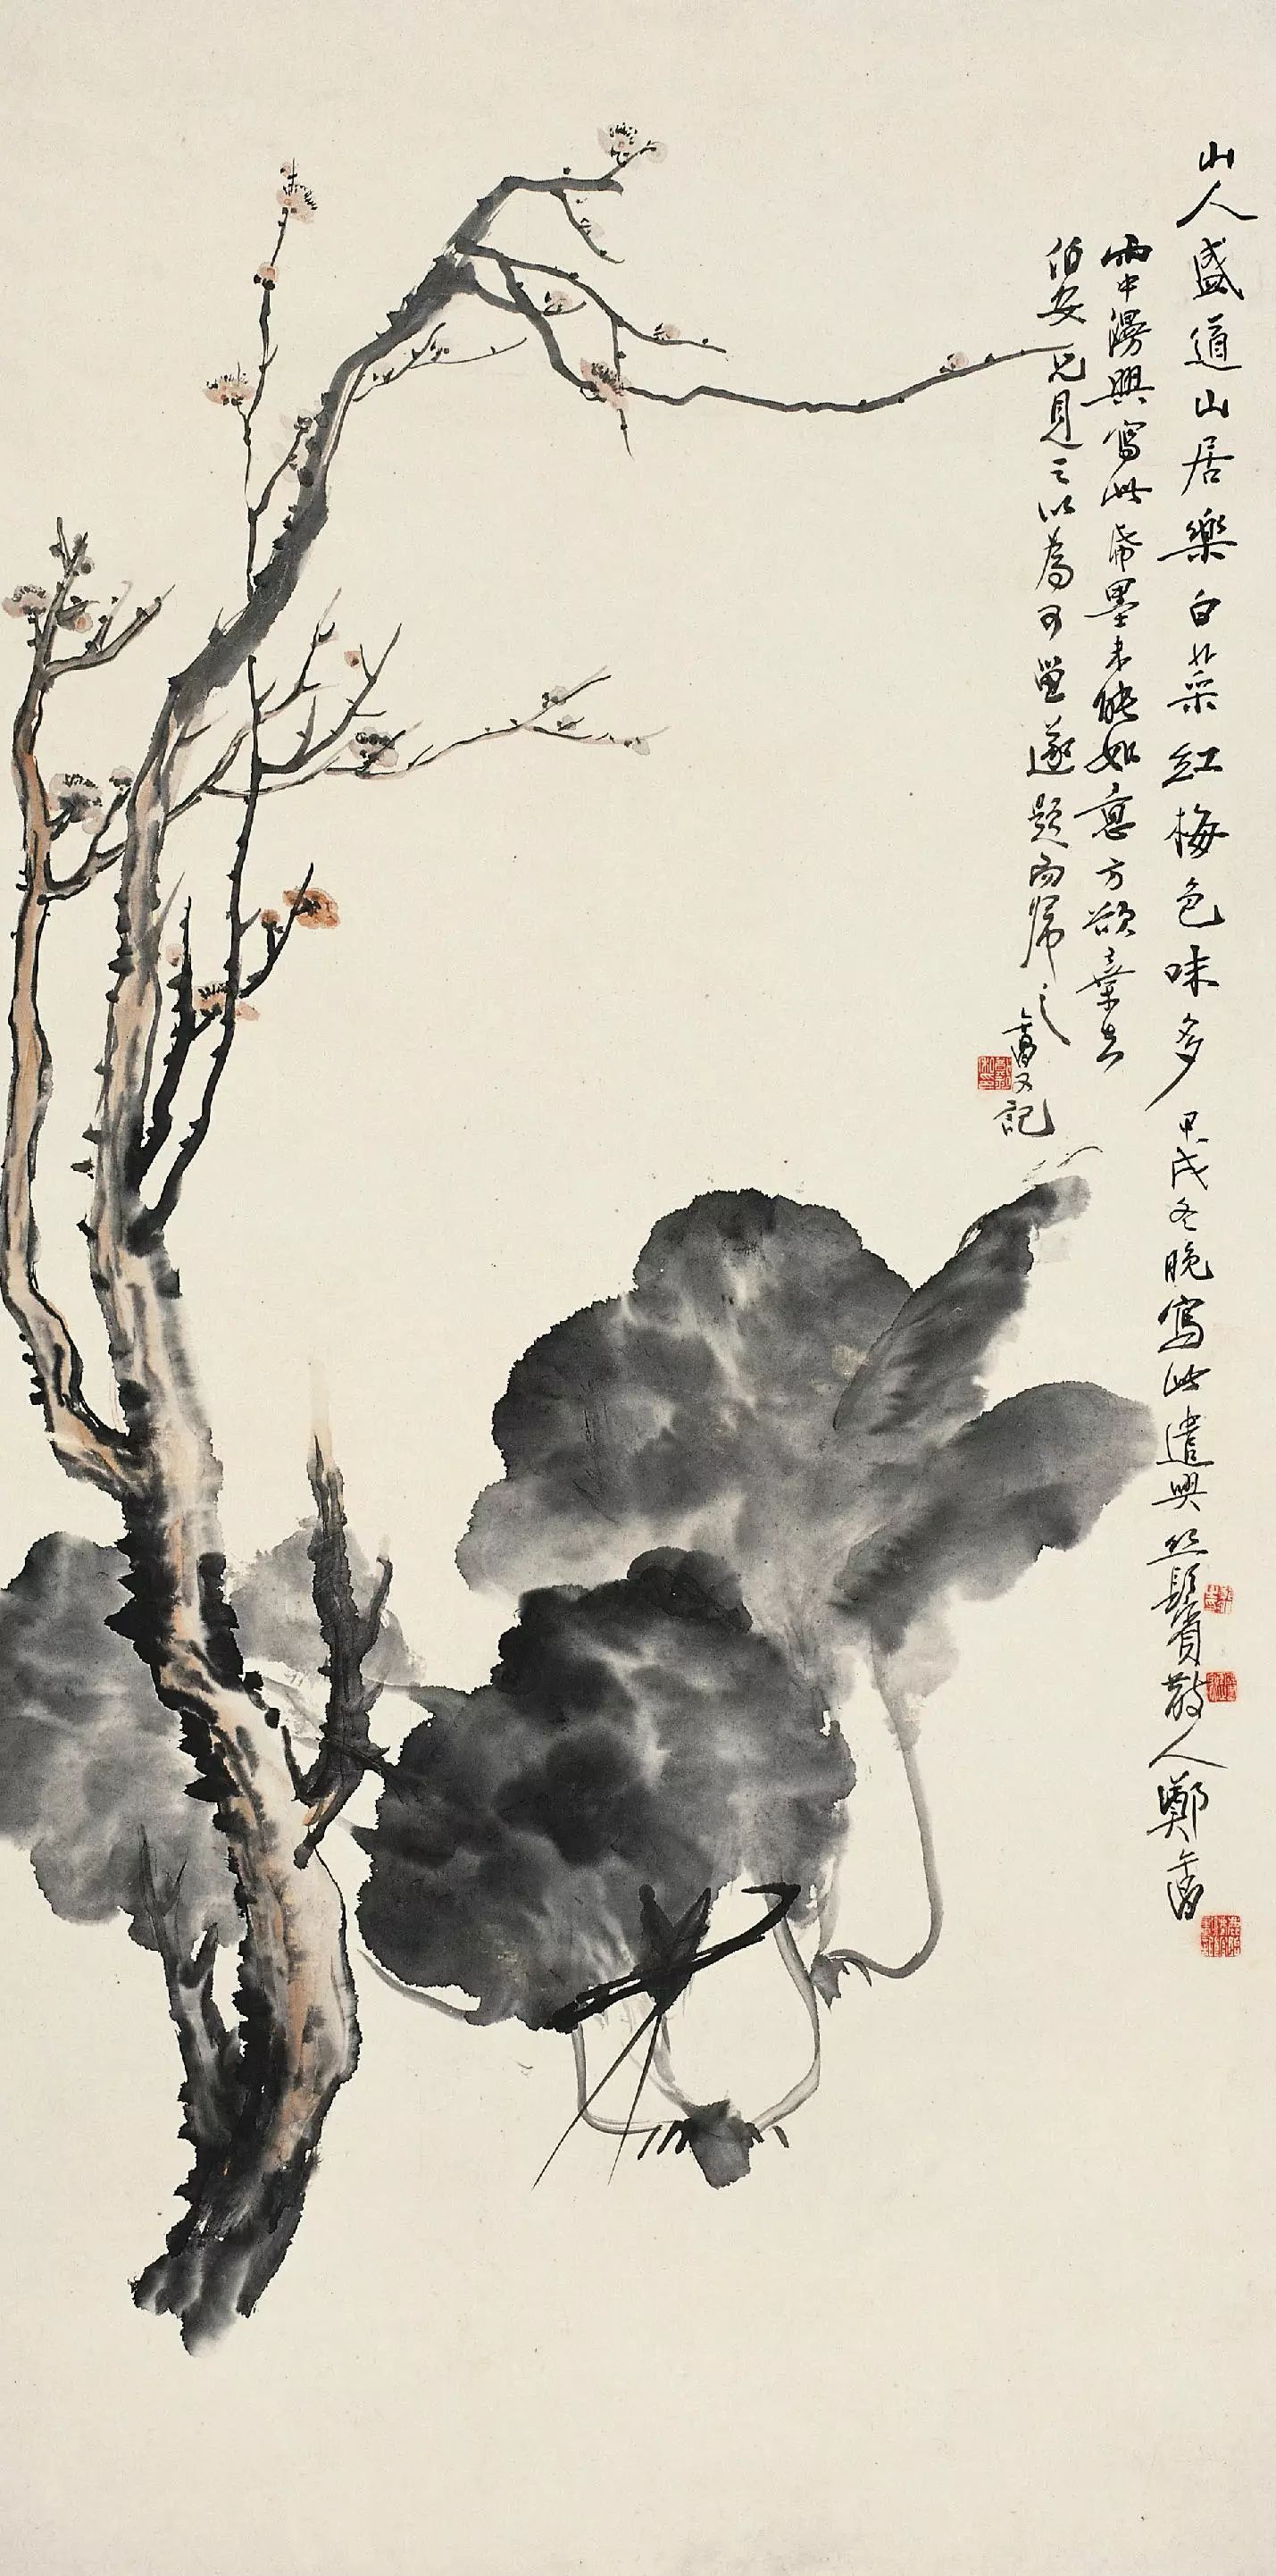 山人盛道山居樂白菜紅梅色味多甲戌冬晚寫此遣興絲鬢散人鄭午昌
雨中漫興寫此帋墨未能如意方欲棄去
伯安兄見之以為可留遂題而歸之午昌又記